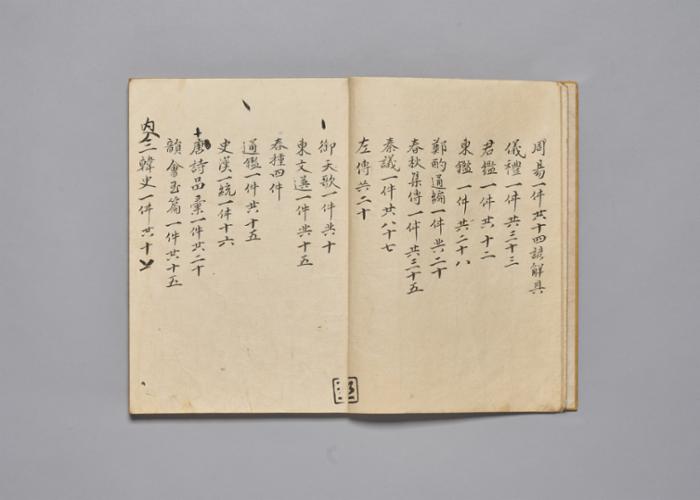 周易一件共十四諺解具
儀禮一件共三十三
君鑑一件共十二
東鑑一件共二十八
鄭酌通編一件共二十
春秋集傳一件共三十五
奏議一件共八十七
左傳共二十
御天歌一件共十
東文選一件共十五
春種四件
通鑑一件共十五
史漢一統一件十六
唐詩品彙一件共二十
韻會玉篇一件共十五
內三韓史一件共十